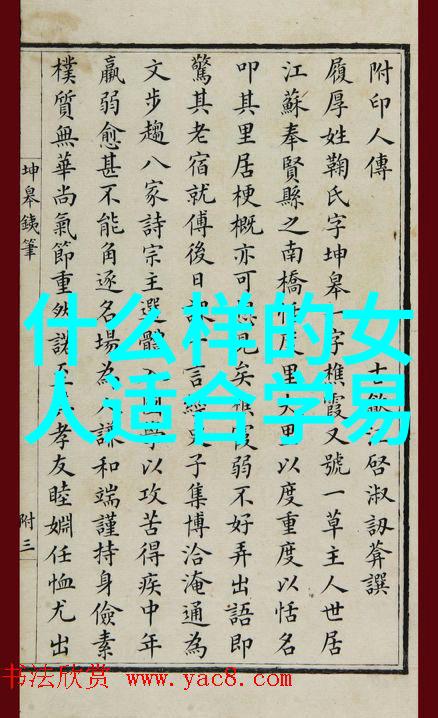 什么样的女
人适合学易
附印人傳 歙汪啓淑訒葊譔
履厚姓鞠氏字坤皋一字樵霞又號一草主人世居
江蘇奉賢縣之南橋 里以度重度以恬名
叩其里居梗概亦可 見矣樵霞弱不好弄出語即
驚其老宿就傅後日課 言 子集博洽淹通為
文步趨八家詩宗主選體 學以攻苦得疾中年
羸弱愈甚不能角逐名場為人謙和端謹持身儉素
樸質無華尚氣節重然諾至 孝友睦婣任恤尤出
坤皋銕筆
附三
书法欣赏 www.yac8.com